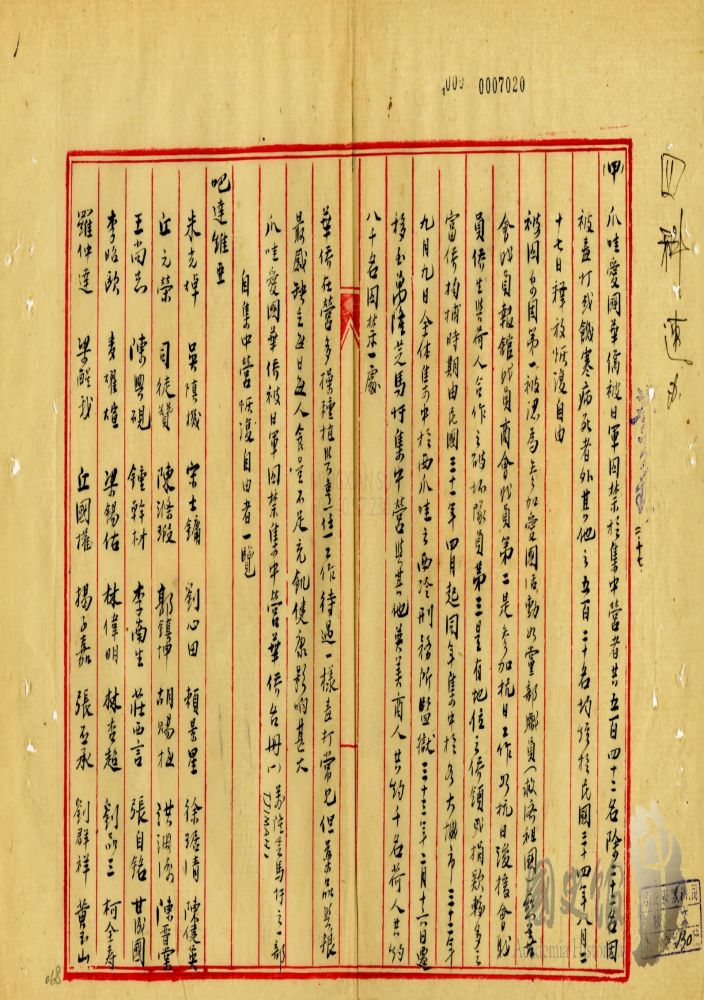 0007020
四科 速办
(甲) 爪哇愛國華僑被日軍囚禁於集中營者共五百四十二名除二十二名因
被毒打或飢寒病死者外其他之五百二十名均經於民國三十四年八月二
十七日釋放恢復自由
被囚原因第一被認為參加愛國活動如黨部職員(救濟祖國
會職員報館職員商會職員第二是參加抗日工作如抗日後援會職
員僑生與荷人合作之破壞隊員第三是有地位之僑領或捐款較多之
富僑拘捕時期由民國三十一年四月起同年集中於各大城市三十二年
九月九日全体集中於西爪哇之西冷刑務所監獄三十三年二月十六日遷
移至萬隆芝馬圩集中營與其他英美商人共約千名荷人共約
八千名囚禁一處
華僑在營多操種植與 工作待遇一樣毒打常見但藥品與糧
最感缺乏每日每人食量不足充飢健康影响甚大
爪哇愛國華僑被日軍囚禁集中營華僑台冊(一) 萬隆芝馬圩之一部 (TJIMAHI)
自集中營恢復自由者一覽
吧達維亞
朱克焯 吳慎機 宋士鏞 劉心田 賴景星 徐琚清 陳健英
丘元榮 司徒贊 陳滌瑕 郭鎮坤 胡賜極 洪淵源 陳晋棠
王尚志 陳興硯 鍾幹材 李南生 莊西言 張自銘 甘咸國
李昭歐 袁耀雄 梁錫佑 林偉明 林杏超 劉品三 柯全壽
羅仲達 梁醒我 丘國權 楊子嘉 張丕承 劉群祥 黃玉山
國史館
Academia Historica
068